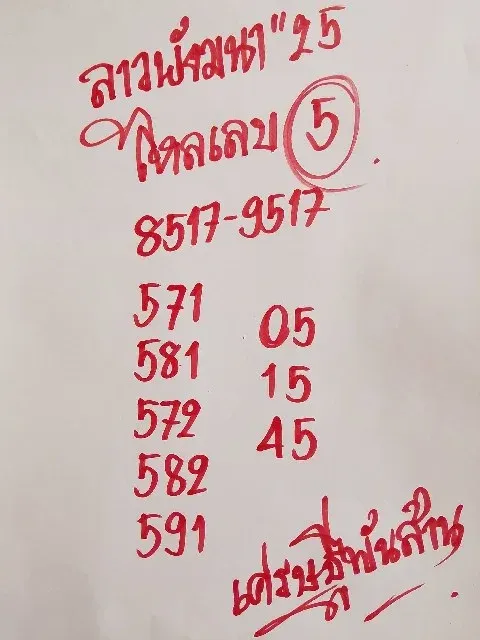 ลาวพัฒนา"25
โหลเลข 5
8517-9517
571
581
572
582
591
05
15
45
เศรษฐีพันล้าน